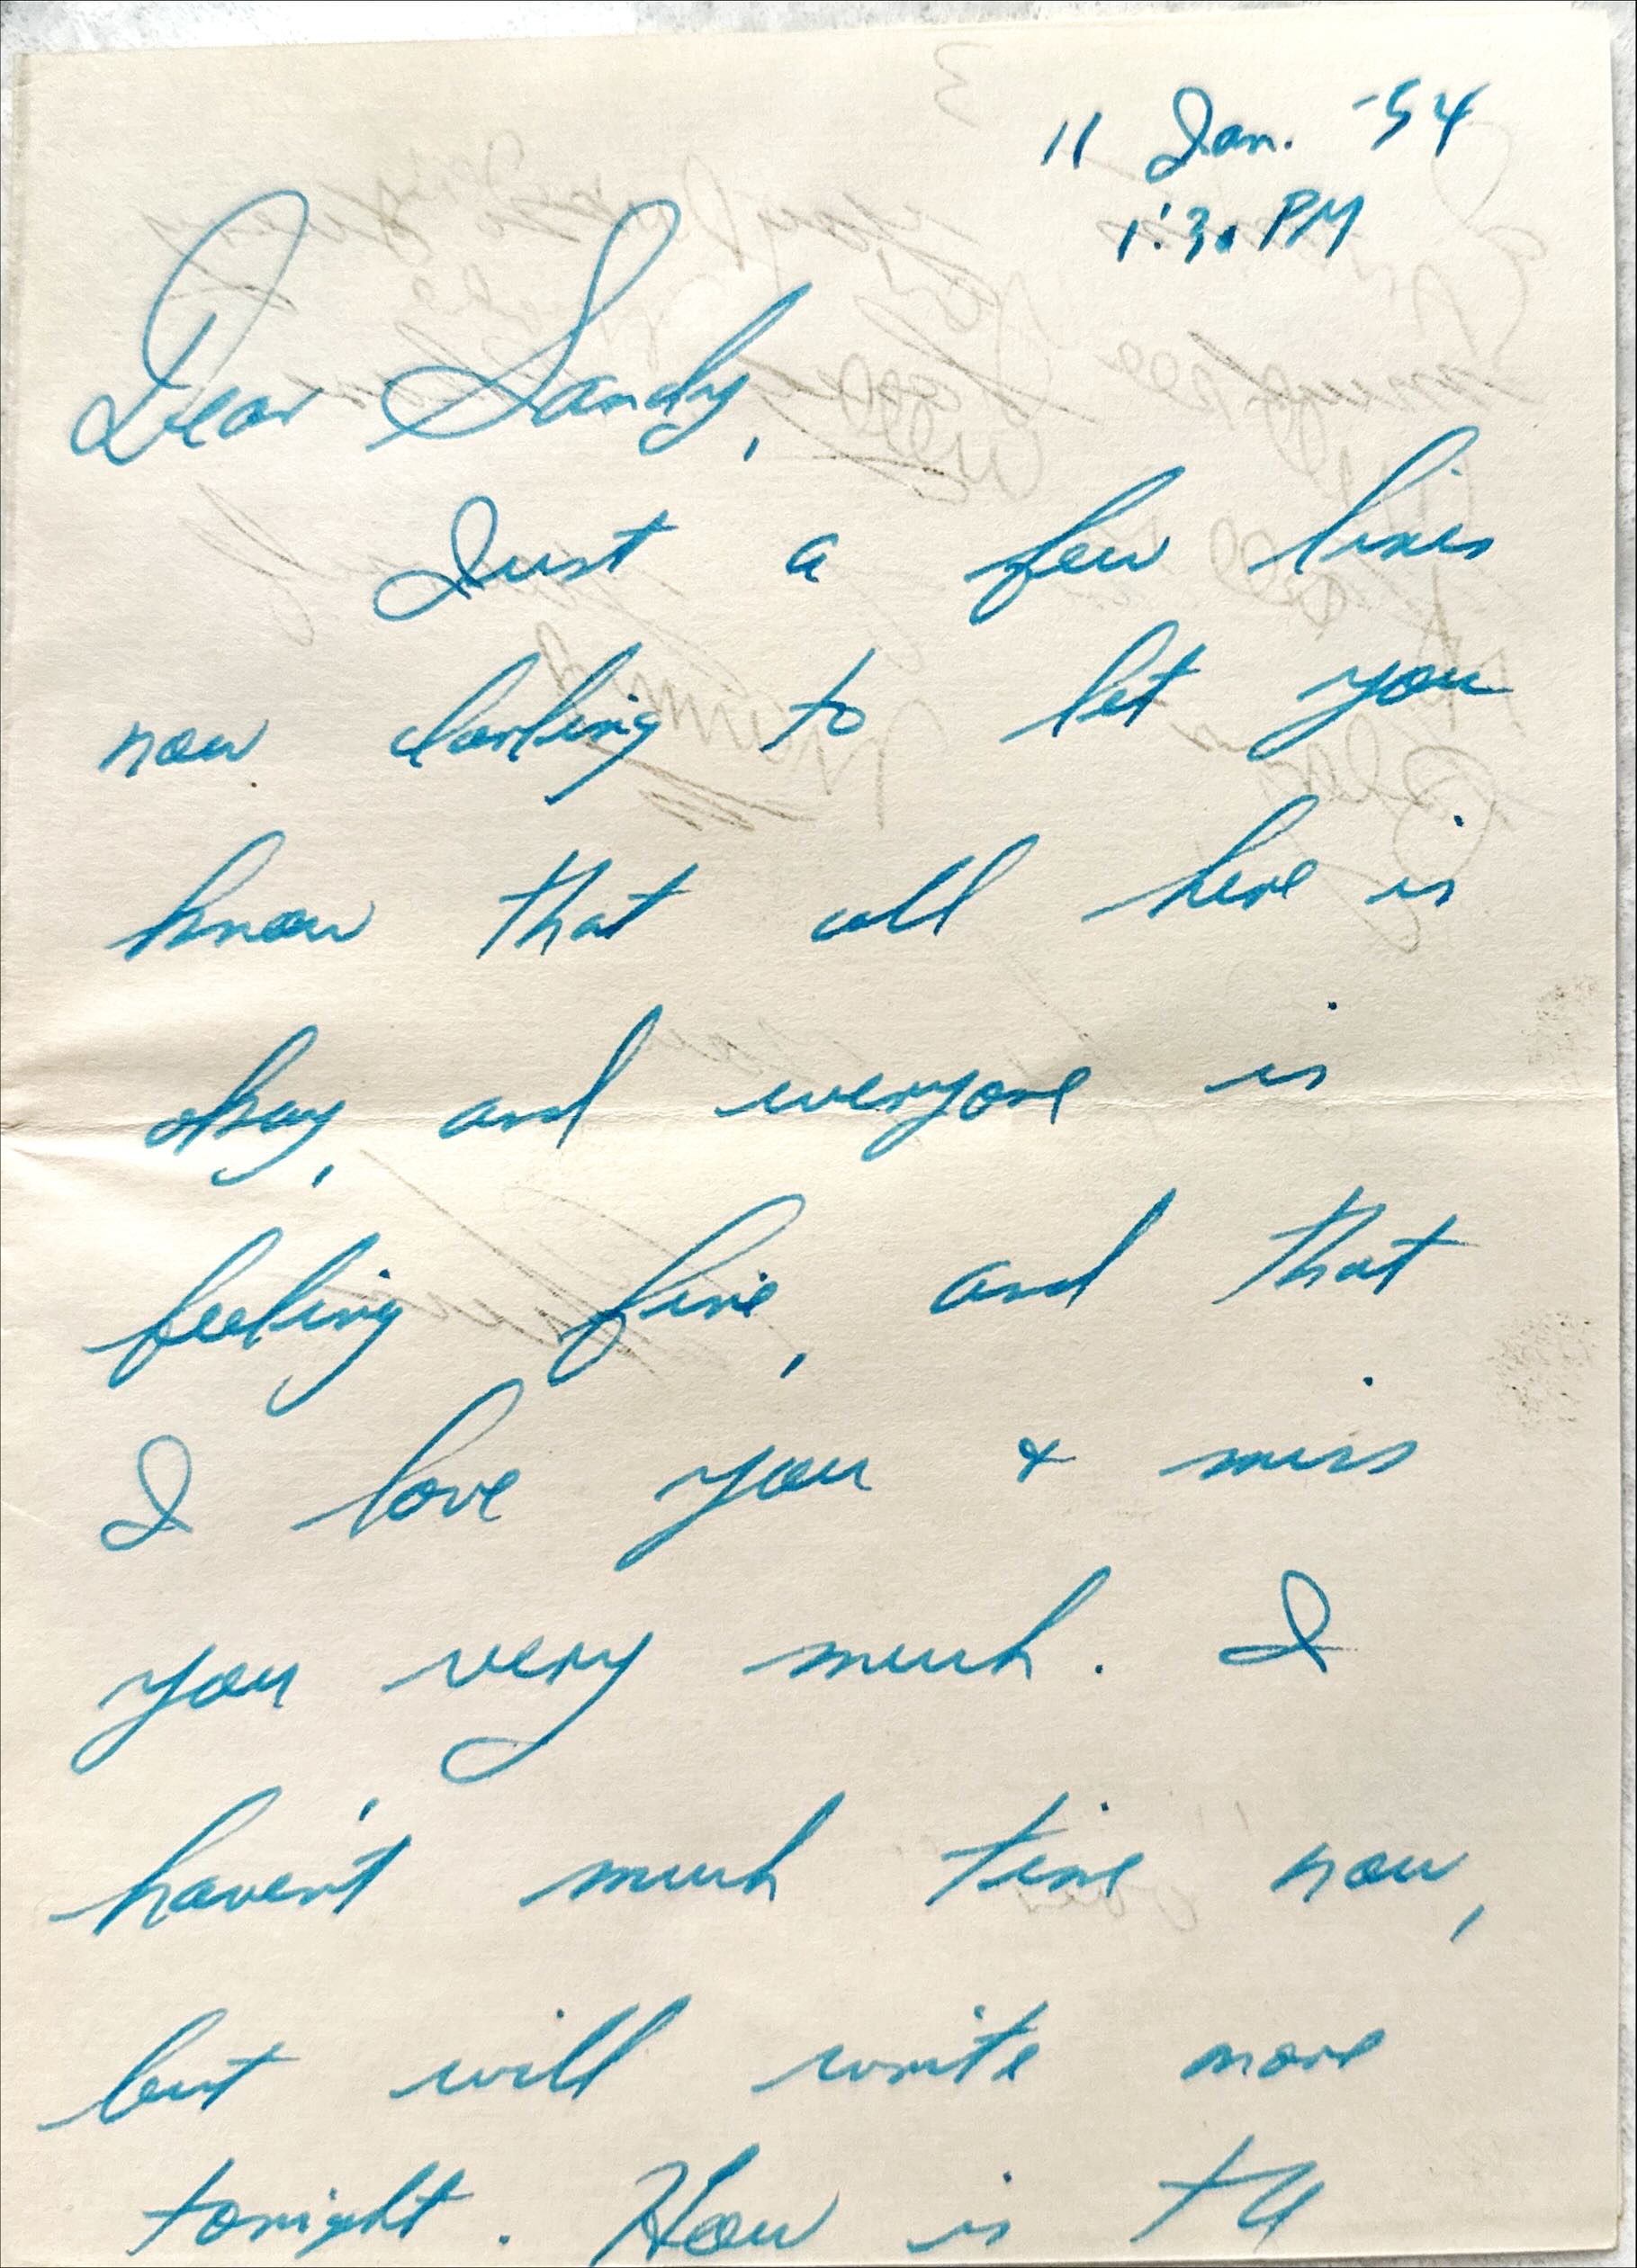 11 Jan. -54
1:30 PM
Dear Sandy,
Just a few lines
now darling to let you
know that all here is
okay, and everyone is
feeling fine, and that
I love you & miss
you very much. I
haven't much time now,
but will write more
tonight. How is the